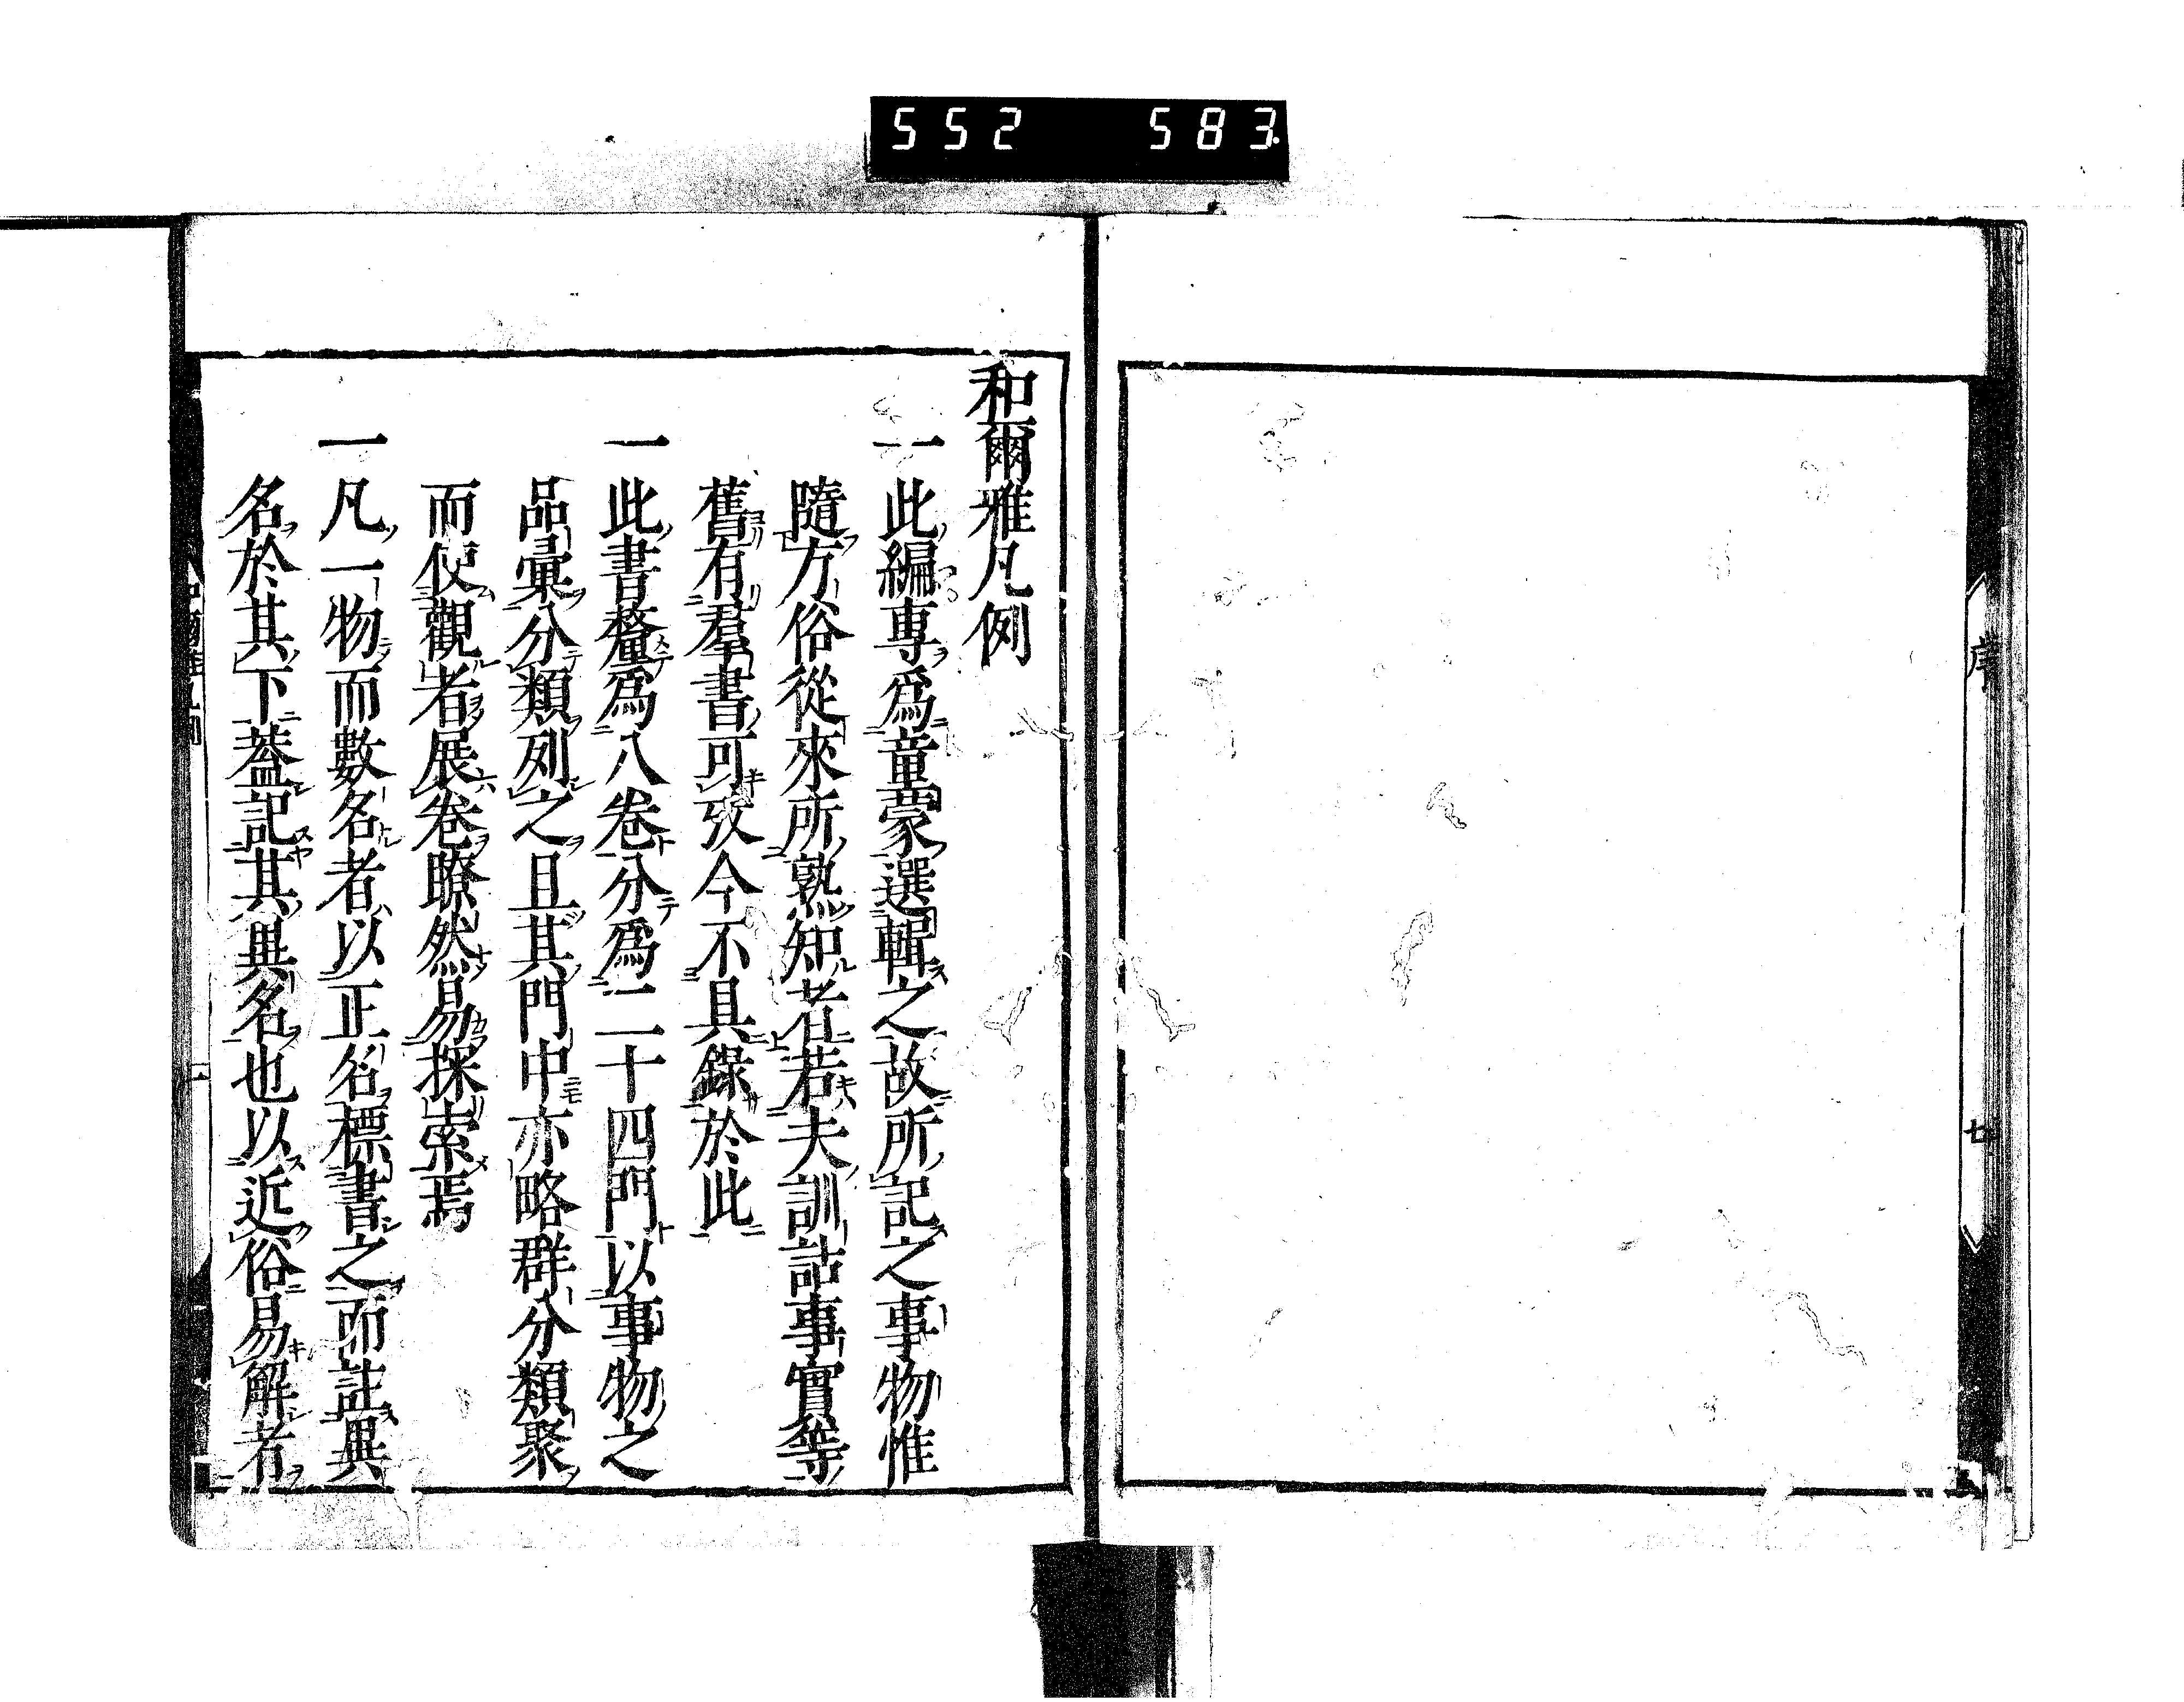 552 583
序
七
和爾雅凡例
一此編專爲童蒙選輯之故所記之事物惟
隨方俗從來所熟知者若夫訓詁事實等
舊有羣書可攷今不具錄於此
一此書釐爲八卷分爲二十四門以事物之
品彙分類列之且其門中亦略群分類聚
而使觀者展卷瞭然易採索焉
一凡一物而數名者以正名標書之而註異
名於其下葢記其異名也以近俗易解者